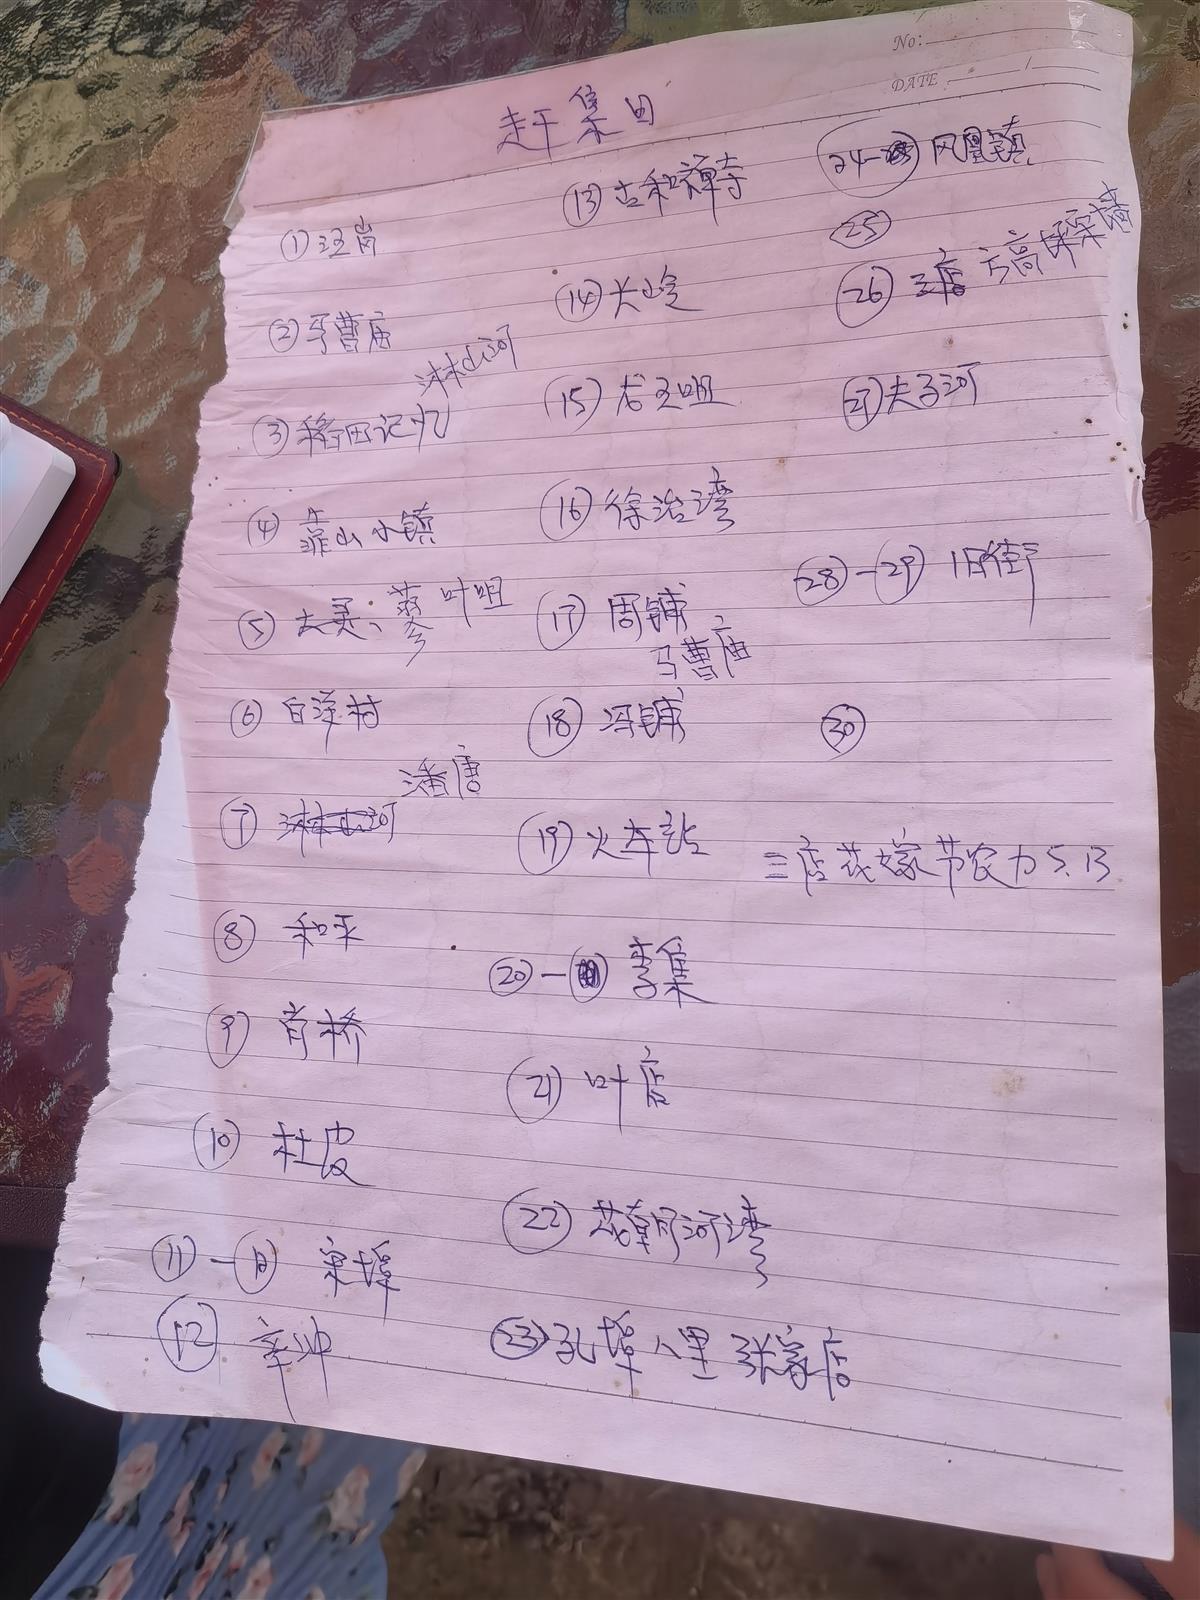 No:
DATE
赶集日
① 汪岗
② 马曹庙
淋山河
③ 稻田记忆
④ 靠山小镇
⑤ 叶咀
⑥ 白洋村
潘唐
⑦ 淋山河
⑧ 和平
⑨ 肖桥
⑩ 杜皮
⑪ — 宋埠
⑫ 辛冲
⑬ 古和禅寺
⑭ 大岭
⑮ 龙王咀
⑯ 徐治湾
⑰ 周铺
马曹庙
⑱ 冯铺
⑲ 火车站
⑳ — 李集
㉑ 叶店
㉒ 花朝河湾
㉓ 孔埠 八里 张家店
㉔ — 凤凰镇
㉕
㉖ 三店 方高坪 宋墙
㉗ 夫子河
㉘ — ㉙ 旧街
㉚
三店花嫁节农力5.13